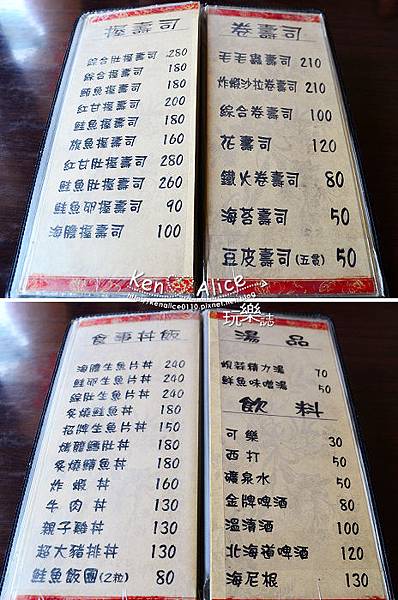 握壽司
綜合肚握壽司 280
綜合握壽司 180
鮪魚握壽司 180
紅甘握壽司 200
鮭魚握壽司 180
旗魚握壽司 160
紅甘肚握壽司 280
鮭魚肚握壽司 260
鮭魚卵握壽司 90
海膽握壽司 100
卷壽司
毛毛蟲壽司 210
炸蝦沙拉卷壽司 210
綜合卷壽司 100
花壽司 120
鐵火卷壽司 80
海苔壽司 50
豆皮壽司(五貫) 50
Ken Alice
http://kenalice0110.pixnet.net/blog
玩樂誌
食事丼飯
海膽生魚片丼 240
鮭卵生魚片丼 240
綜肚生魚片丼 240
炙燒鮭魚丼 180
招牌生魚片丼 150
烤龍鱈肚丼 180
炙燒鯖魚丼 180
炸蝦丼 160
牛肉丼 130
親子雞丼 130
超大豬排丼 130
鮭魚飯糰(2粒) 80
湯品
蜆蒜精力湯 70
鮮魚味噌湯 50
飲料
可樂 30
西打 50
礦泉水 50
金牌啤酒 80
溫清酒 100
北海道啤酒 120
海尼根 130